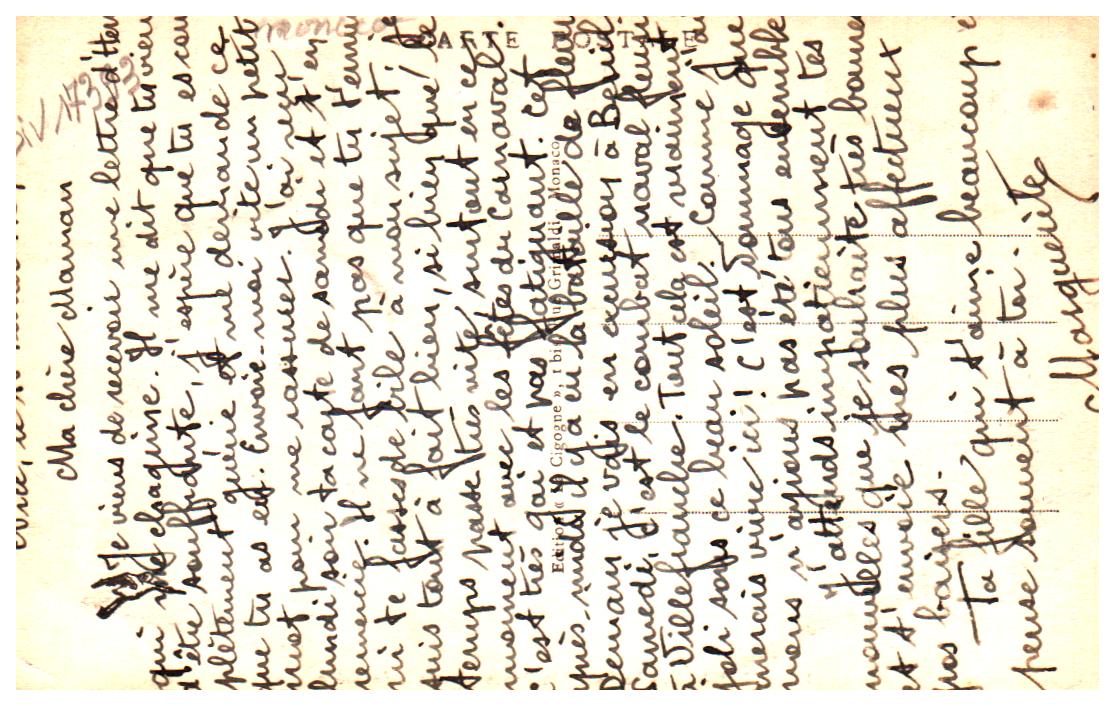 Ma chère Maman
Je viens de recevoir une lettre d'Hen
qui me chagrine. Il me dit que tu viens
d'être souffrante, j'espère que tu es com
plètement guérie et me demande ce
que tu as est. Envoie-moi vite un petit
mot pour me rassurer. J'ai reçu
lundi soir ta carte de samedi et t'en
remercie. Il ne faut pas que tu t'ennu
fasses de bile à mon sujet; je
suis tout à fait bien, si bien que le
temps passe très vite, surtout en ce
moment avec les fêtes du Carnaval.
C'est très gai et pas fatigant. Cet
après-midi il y a eu la bataille de fleurs
Demain je vais en excursion à Beuil
Samedi c'est le combat naval fleuri
à Villefranche. Tout cela est vraiment
joli sous ce beau soleil. Comme j'ai
merais vivre ici! C'est dommage que
nous n'ayions pas été tous ensemble
J'attends impatiemment tes
nouvelles que je souhaite très bonnes
et t'envoie mes plus affectueux
gros baisers.
Ta fille qui t'aime beaucoup
pense souvent à toi.
Marguerite
CARTE POSTALE
Edition « La Cigogne », 1 bis, rue Grimaldi, Monaco
monaco